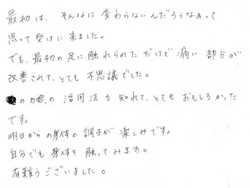 最初は、そんなに変わらないんだろうなぁって
思って受けに来ました。
でも、最初の足に触れられただけで痛い部分が
改善されて、とても不思議でした。
の活用法も知れて、とてもおもしろかった
です。
明日からの身体の調子が楽しみです。
自分でも身体を触ってみます。
有難うございました。